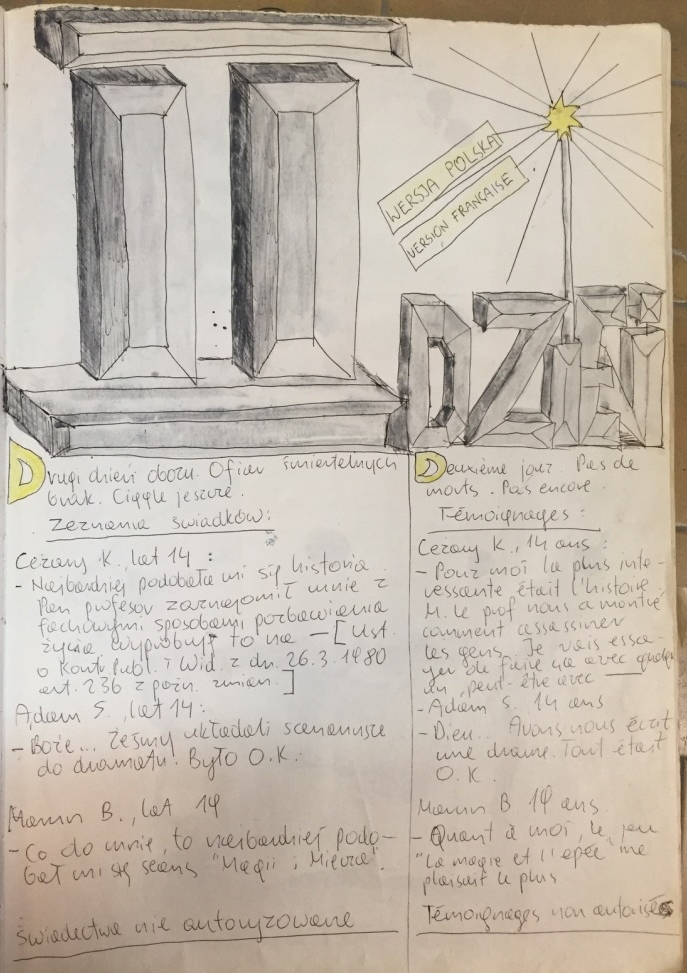 II
WERSJA POLSKA
VERSION FRANÇAISE
DZIEŃ
Drugi dzień obozu. Ofiar śmiertelnych
brak. Ciągle jeszcze.
Zeznania świadków:
Cezary K., lat 14 :
- Najbardziej podobała mi się historia.
Pan profesor zaznajomił mnie z
fachowymi sposobami pozbawiania
życia wypróbuję to na — [Ust.
o kontr. publ. i wid. z dn. 26.3.1980
art. 236 z późn. zmian.]
Adam S., lat 14:
- Boże... Żeśmy układali scenariusze
do dramatu. Było O.K.
B., lat 14
- Co do mnie, to najbardziej podo-
bał mi się seans "Magii i Miecza".
Świadectwa nie autoryzowane
Deuxième jour. Pas de
morts. Pas encore.
Témoignages :
Cezary K., 14 ans :
- Pour moi la plus inte-
ressante était l'histoire.
M. le prof nous a montré
comment assassiner
les gens. Je vais essa-
yer de faire ça avec quelqu
un, peut-être avec ___
- Adam S. 14 ans
- Dieu... Avons nous écrit
une drame. Tout était
O.K.
B. 14 ans.
- Quant à moi, le jeu
"La magie et l'epée" me
plaisait le plus
Témoignages non autorisés